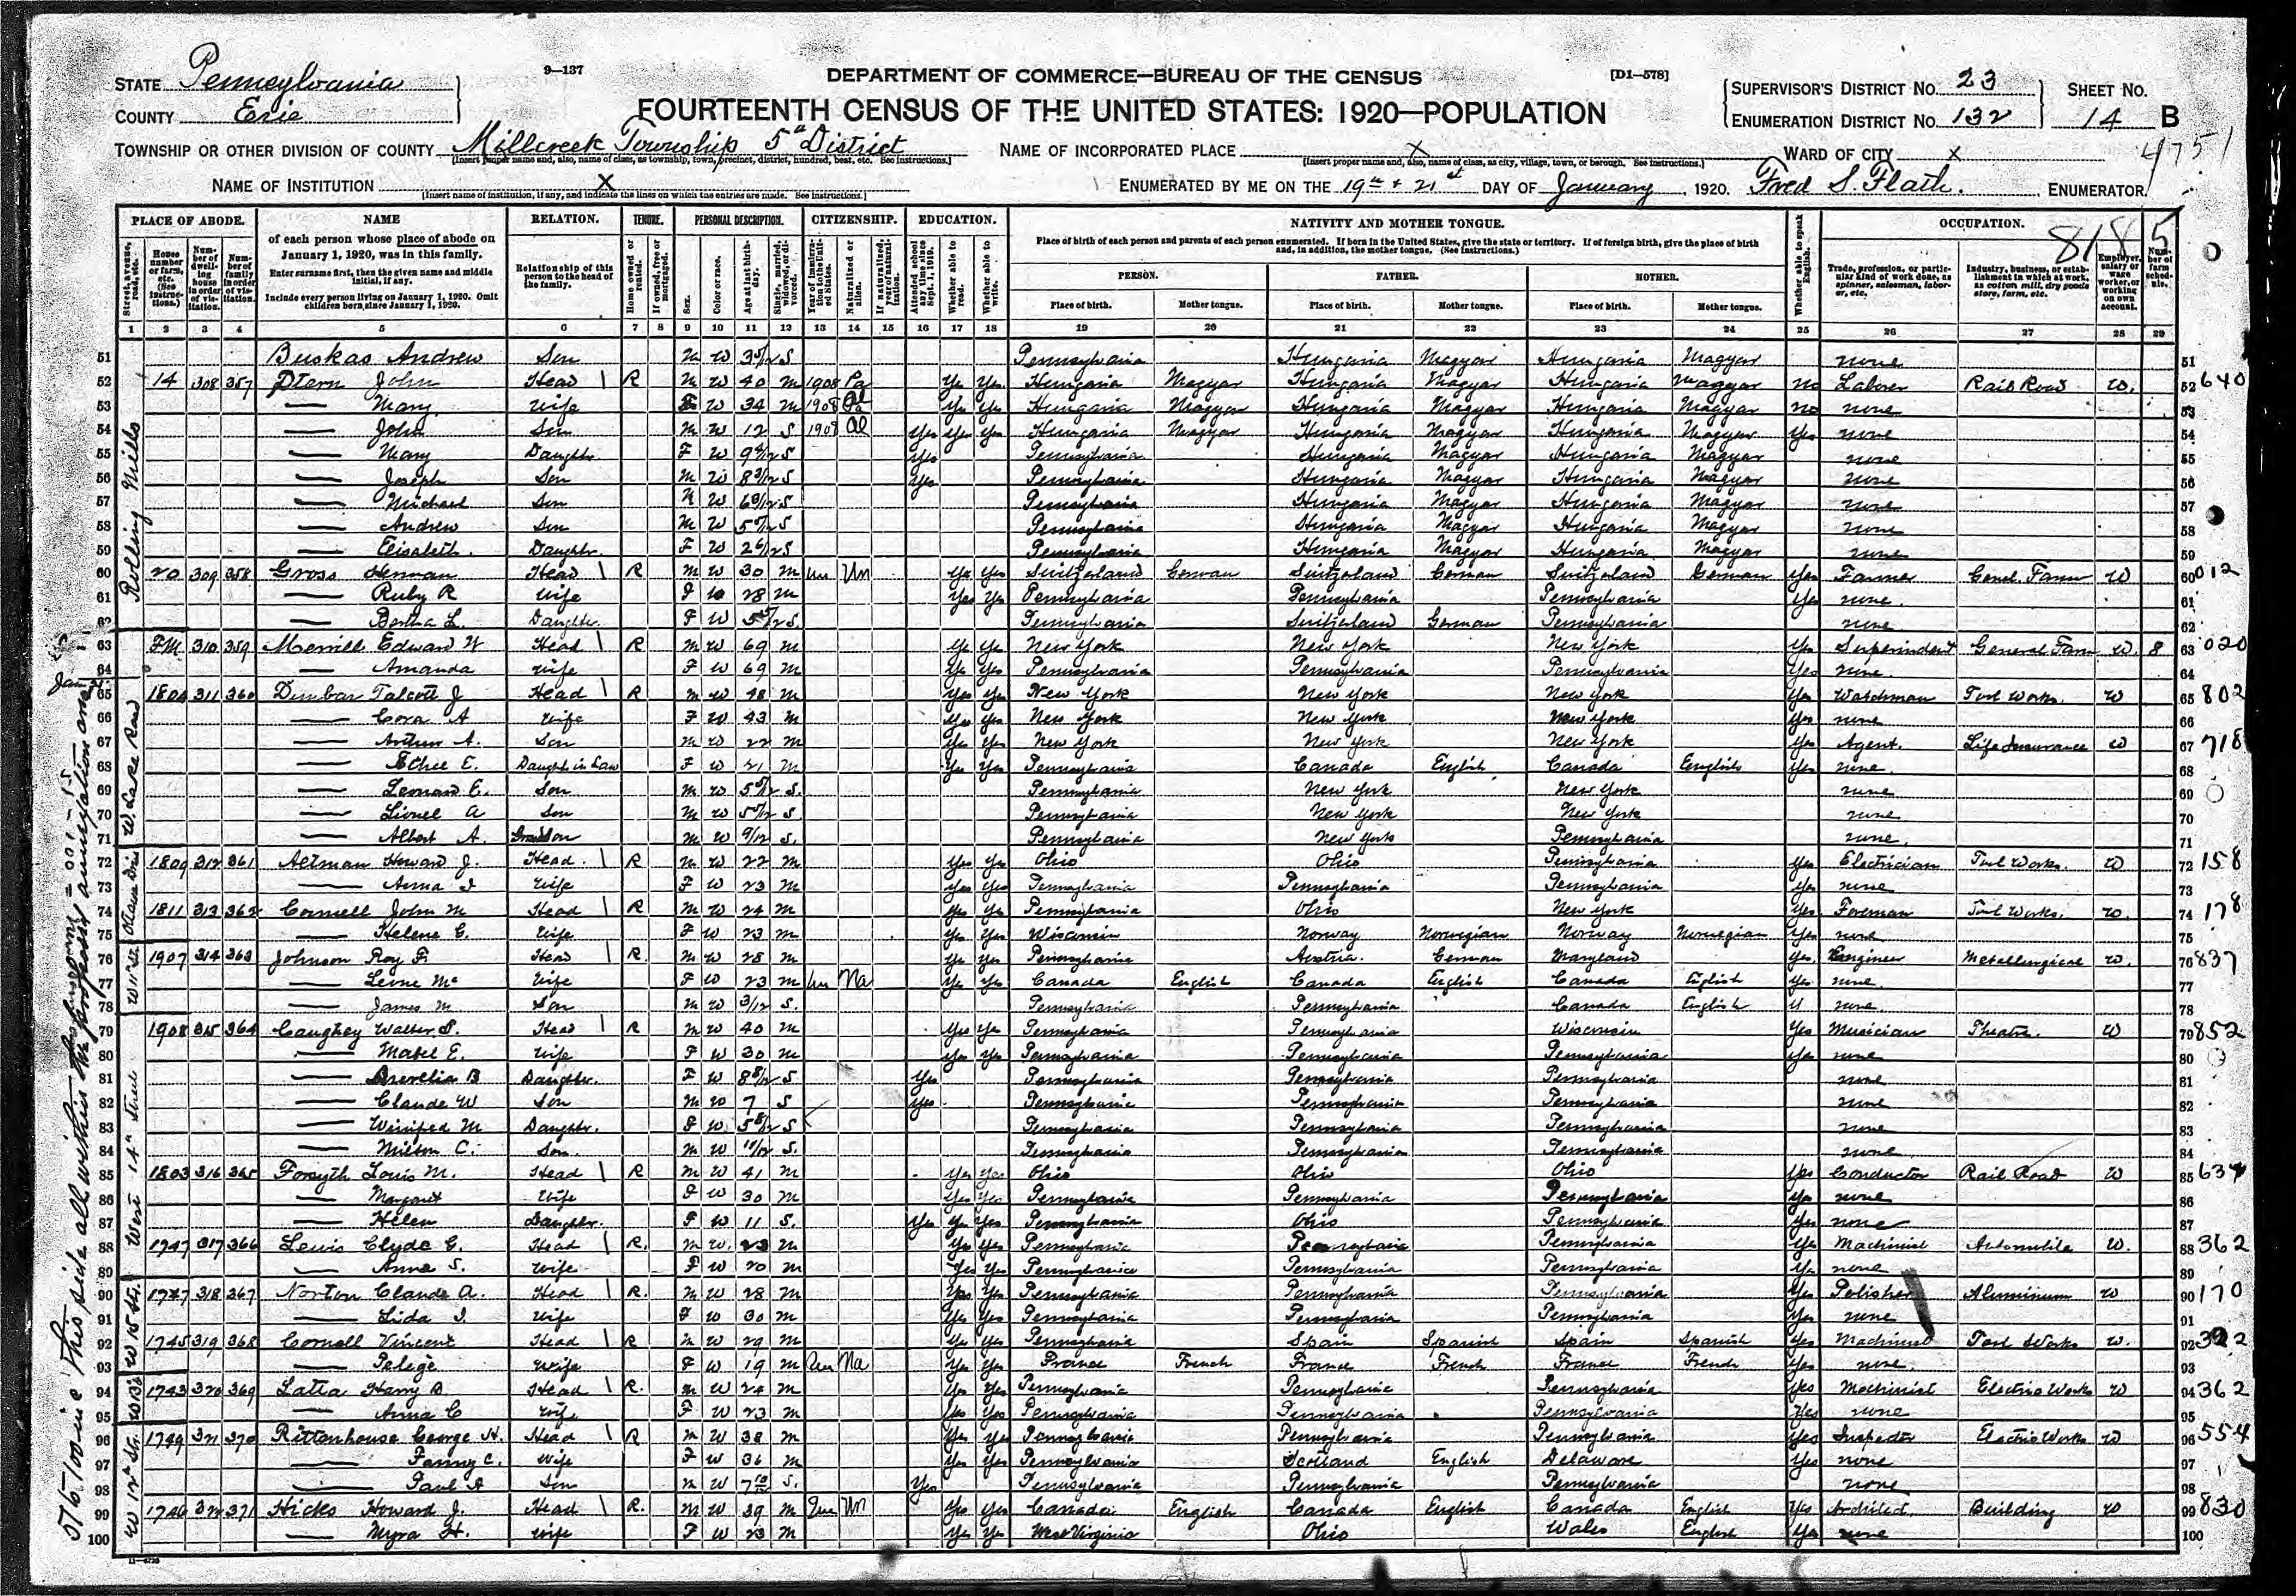 9—137
DEPARTMENT OF COMMERCE—BUREAU OF THE CENSUS
[D1—578]
STATE Pennsylvania
COUNTY Erie
FOURTEENTH CENSUS OF THE UNITED STATES: 1920—POPULATION
SUPERVISOR'S DISTRICT No. 23
ENUMERATION DISTRICT No. 132
SHEET No. 14 B
4751
TOWNSHIP OR OTHER DIVISION OF COUNTY Millcreek Township 5th District
NAME OF INCORPORATED PLACE x
WARD OF CITY x
NAME OF INSTITUTION x
ENUMERATED BY ME ON THE 19th + 21st DAY OF January, 1920. Fred S. Flath. ENUMERATOR.
PLACE OF ABODE. NAME RELATION. TENURE. PERSONAL DESCRIPTION. CITIZENSHIP. EDUCATION. NATIVITY AND MOTHER TONGUE. OCCUPATION.
8185
of each person whose place of abode on January 1, 1920, was in this family.
Enter surname first, then the given name and middle initial, if any.
Include every person living on January 1, 1920. Omit children born since January 1, 1920.
Relationship of this person to the head of the family.
Place of birth of each person and parents of each person enumerated. If born in the United States, give the state or territory. If of foreign birth, give the place of birth and, in addition, the mother tongue. (See instructions.)
PERSON. FATHER. MOTHER.
Place of birth. Mother tongue. Place of birth. Mother tongue. Place of birth. Mother tongue.
1 2 3 4 5 6 7 8 9 10 11 12 13 14 15 16 17 18 19 20 21 22 23 24 25 26 27 28 29
51 Buskas Andrew Son M W 3 5/12 S Pennsylvania Hungaria Magyar Hungaria Magyar none 51
52 14 308 357 John Head 1 R M W 40 M 1908 Pa Yes Yes Hungaria Magyar Hungaria Magyar Hungaria Magyar no Laborer Rail Road W. 52 640
53 — Mary Wife F W 34 M 1908 Yes Yes Hungaria Magyar Hungaria Magyar Hungaria Magyar no none 53
54 — John Son M W 12 S 1908 Al Yes Yes Yes Hungaria Magyar Hungaria Magyar Hungaria Magyar Yes none 54
55 — Mary Daughter F W S Yes Pennsylvania Hungaria Magyar Hungaria Magyar none 55
56 — Joseph Son M W S Yes Pennsylvania Hungaria Magyar Hungaria Magyar none 56
57 — Michael Son M W S Pennsylvania Hungaria Magyar Hungaria Magyar none 57
58 — Andrew Son M W S Pennsylvania Hungaria Magyar Hungaria Magyar none 58
59 — Elisabeth Daughter F W 2 6/12 S Pennsylvania Hungaria Magyar Hungaria Magyar none 59
60 20 309 358 Gross Herman Head 1 R M W 30 M Un Un Yes Yes Switzerland German Switzerland German Switzerland German Yes Farmer Genl. Farm W 60 012
61 — Ruby R Wife F W 28 M Yes Yes Pennsylvania Pennsylvania Pennsylvania Yes none 61
62 — Bertha L. Daughter F W S Pennsylvania Switzerland German Pennsylvania none 62
63 FM 310 359 Merrill Edward W Head 1 R M W 69 M Yes Yes New York New York New York Yes Superindent General Farm W. 8 63 020
64 — Amanda Wife F W 69 M Yes Yes Pennsylvania Pennsylvania Pennsylvania Yes none 64
65 1804 311 360 Dunbar Talcott J Head 1 R M W 48 M Yes Yes New York New York New York Yes Watchman Tool Works W 65 802
66 — Cora A Wife F W 43 M Yes Yes New York New York New York Yes none 66
67 — Arthur A. Son M W 22 M Yes Yes New York New York New York Yes Agent. Life Insurance W 67 718
68 — Ethel E. Daughter in Law F W 21 M Yes Yes Pennsylvania Canada English Canada English Yes none 68
69 — Leonard E. Son M W S. Pennsylvania New York New York none 69
70 — Lionel A Son M W 5 5/12 S Pennsylvania New York New York none 70
71 — Albert A. Grandson M W 9/12 S. Pennsylvania New York Pennsylvania none 71
72 1809 312 361 Altman Howard J. Head 1 R M W 22 M Yes Yes Ohio Ohio Pennsylvania Yes Electrician Tool Works W 72 158
73 — Anna I Wife F W 23 M Yes Yes Pennsylvania Pennsylvania Pennsylvania Yes none 73
74 1811 313 362 Connell John M Head 1 R M W 24 M Yes Yes Pennsylvania Ohio New York Yes Foreman Tool Works W. 74 178
75 — Helene C. Wife F W 23 M Yes Yes Wisconsin Norway Norwegian Norway Norwegian Yes none 75
76 1907 314 363 Johnson Roy F. Head 1 R. M W 28 M Yes Yes Pennsylvania Austria German Maryland Yes Engineer Metallurgical W. 76 837
77 — Leone Mc Wife F W 23 M Un Na Yes Yes Canada English Canada English Canada English Yes none 77
78 — James M Son M W 3/12 S. Pennsylvania Pennsylvania Canada English none 78
79 1908 315 364 Caughey Walter S. Head 1 R M W 40 M Yes Yes Pennsylvania Pennsylvania Wisconsin Yes Musician Theatre. W 79 852
80 — Mabel E. Wife F W 30 M Yes Yes Pennsylvania Pennsylvania Pennsylvania Yes none 80
81 — B Daughter. F W 8 8/12 S Yes Pennsylvania Pennsylvania Pennsylvania none 81
82 — Claude W Son M W 7 S Yes Pennsylvania Pennsylvania Pennsylvania none 82
83 — Winifred M Daughter. F W 5 8/12 S Pennsylvania Pennsylvania Pennsylvania none 83
84 — Milton C. Son M W S. Pennsylvania Pennsylvania Pennsylvania none 84
85 1803 316 365 Forsyth Louis M. Head 1 R M W 41 M Yes Yes Ohio Ohio Ohio Yes Conductor Rail Road W 85 634
86 — Margaret Wife F W 30 M Yes Yes Pennsylvania Pennsylvania Pennsylvania Yes none 86
87 — Helen Daughter F W 11 S. Yes Yes Yes Pennsylvania Ohio Pennsylvania Yes none 87
88 1747 317 366 Lewis Clyde G. Head 1 R. M W 23 M Yes Yes Pennsylvania Pennsylvania Pennsylvania Yes Machinist Automobile W. 88 362
89 — Anna S. Wife F W 20 M Yes Yes Pennsylvania Pennsylvania Pennsylvania Yes none 89
90 1747 318 367 Norton Claude A. Head 1 R. M W 28 M Yes Yes Pennsylvania Pennsylvania Pennsylvania Yes Polisher Aluminium W 90 170
91 — Lida I. Wife F W 30 M Yes Yes Pennsylvania Pennsylvania Pennsylvania Yes none 91
92 1745 319 368 Vincent Head 1 R M W 29 M Yes Yes Pennsylvania Spain Spanish Spain Spanish Yes Machinist Tool Works W. 92
93 — Pelege Wife F W 19 M Un Na Yes Yes France French France French France French Yes none 93
94 1743 320 369 Harry B. Head 1 R. M W 24 M Yes Yes Pennsylvania Pennsylvania Pennsylvania Yes Machinist Electric Works W 94 362
95 — Anna C Wife F W 23 M Yes Yes Pennsylvania Pennsylvania Pennsylvania Yes none 95
96 1749 321 370 Rittenhouse George H. Head 1 R M W 38 M Yes Yes Pennsylvania Pennsylvania Pennsylvania Yes Inspector Electric Works W 96 554
97 — Fanny C. Wife F W 36 M Yes Yes Pennsylvania Scotland English Delaware Yes none 97
98 — Paul A Son M W 7 10/12 S. Yes Pennsylvania Pennsylvania Pennsylvania none 98
99 1746 322 371 Hicks Howard J. Head 1 R. M W 39 M Un Yes Yes Canada English Canada English Canada English Yes Architect Building W 99 830
100 — Myra H. Wife F W 23 M Yes Yes West Virginia Ohio Wales English Yes none 100
Rolling Mills
W. Lake Road
West 14th Street
W 15 St.
W 12th St.
11—4725